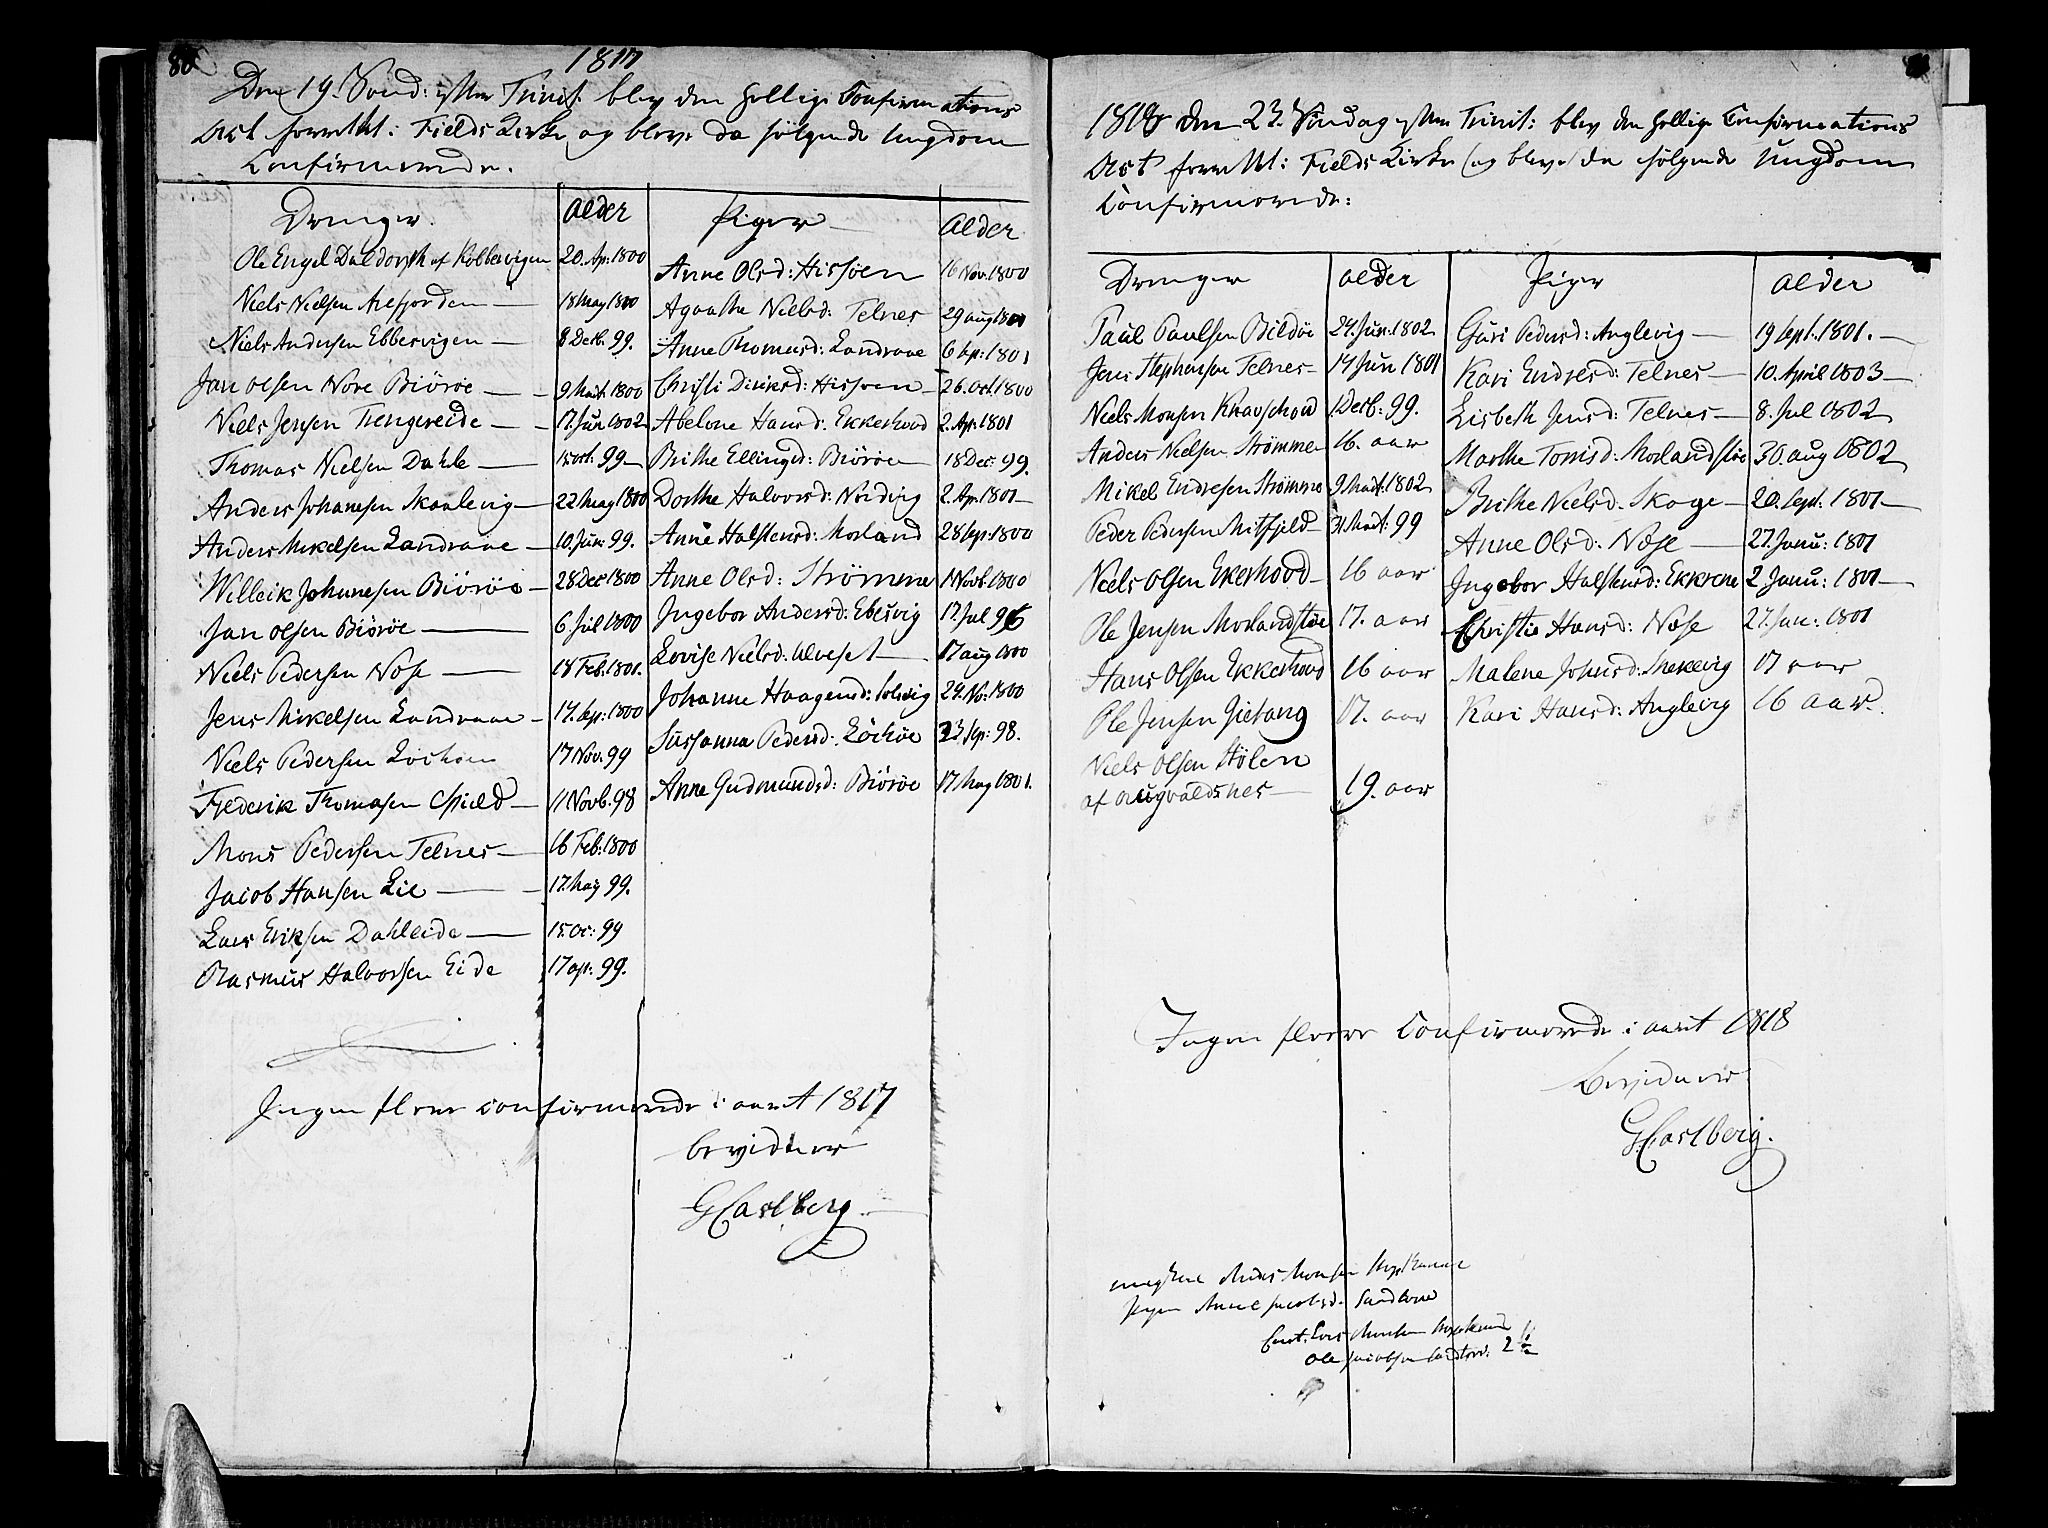 80
1817
Den 19. Sønd: efter Trinit. blev den hellige Confirmations
Act forrettet i Fields Kirke og bleve da følgende Ungdom
Confirmerede.
Drenger. Alder Piger Alder
Ole Engel Daldorph af Kobbervigen 20. Ap: 1800
Anne Olsd: Hissøen 16 Nov. 1800
Niels Nielsen Arefjorden 18 May 1800
Agaathe Nielsd: Telnes 29 aug 1801
Niels Andersen Ebbesvigen 8 Decb. 99.
Anne Thomasd: Landraae 6 Sep: 1801
Jan Olsen Nore Biöröe 9 Mart 1800
Christi Diriksd: Hissoen 26. Oct. 1800
Niels Jensen Tiengereide 17. Jun 1802
Abelone Hansd: Ekkerhovd 2. Ap. 1801
Thomas Nielsen Dahle 15 oct. 99
Brithe Ellingsd: Biöröe 18 Dec: 99.
Anders Johanesen Skaalevig 22 May 1800
Dorthe Halvorsd: Nordvig 2. Ap. 1801
Anders Mikelsen Landraae 10. Jun: 99.
Anne Halstensd: Morland 28 Sep: 1800
Willeik Johanesen Biöröe 28 Dec 1800
Anne Olsd: Strömme 1 Novb. 1800
Jan Olsen Biöröe 6. Jul 1800
Ingebor Andersd: Ebesvig 17. Jul 96
Niels Pedersen Nöse 18 Feb. 1801.
Lovise Nielsd: Ulveset 17 aug 1800
Jens Mikelsen Landraae 14. Sep: 1800
Johanne Haagensd: Solsvig 24. No: 1800
Niels Pedersen Lockøen 17 Nov. 99
Sussanna Pedersd: Löckøe 23 Sep: 98.
Frederik Thomasen Spield 11 Novb. 98
Anne Gudmundsd: Biöröe 17 May 1801.
Mons Pedersen Telnes 16 Feb: 1800
Jacob Hansen Lie 17. May 99.
Lars Eriksen Dahleide 15. Oc: 99
Rasmus Halvorsen Eide 17 ap: 99.
Ingen flere confirmerede i aaret 1817
bevidner
G Carlberg.
1818 den 23. Søndag efter Trinit: blev den hellige Confirmations
Act forrettet i Fields Kirke og bleve da følgende Ungdom
Confirmerede:
Drenger alder Piger alder
Paul Paulsen Bildöe 24. Jun: 1802 Guri Pedersd: Anglevig 19 Sept. 1801.
Jens Stephensen Telnes 14 Jun 1801 Kari Endresd: Telnes 10. April 1803
Niels Monsen Knapschou 1 Decb: 99. Lisbeth Jensd: Telnes 8. Jul 1802
Anders Nielsen Strömme 16. aar Marthe Tomisd: Morlandstöe 30. aug 1802
Mikel Endresen Strömme 9 Mart: 1802 Brithe Nielsd. Skoge 20. Sept. 1801
Peder Pedersen Mitfjeld 31 Mart: 99 Anne Olsd: Nose 27. Janu: 1801
Niels Olsen Ekerhovd 16 aar Ingebor Halstensd: Ekkrene 2 Janu: 1801
Ole Jensen Morlandstöe 17. aar Christie Hansd: Nose 27. Jan: 1801
Hans Olsen Ekkerhovd 16 aar Malene Johnsd: Snekevig 17 aar
Ole Jensen Gietang 17. aar Kari Hansd: Anglevig 16 aar.
Niels Olsen Hölen
af Augvaldsnes 19. aar
Ingen flere Confirmerede i aaret 1818
bevidner
G Carlberg.
Anders Monsen
Anne Jacobsd. Sandtorv
Ole Jacobsen Sandtorv: 2